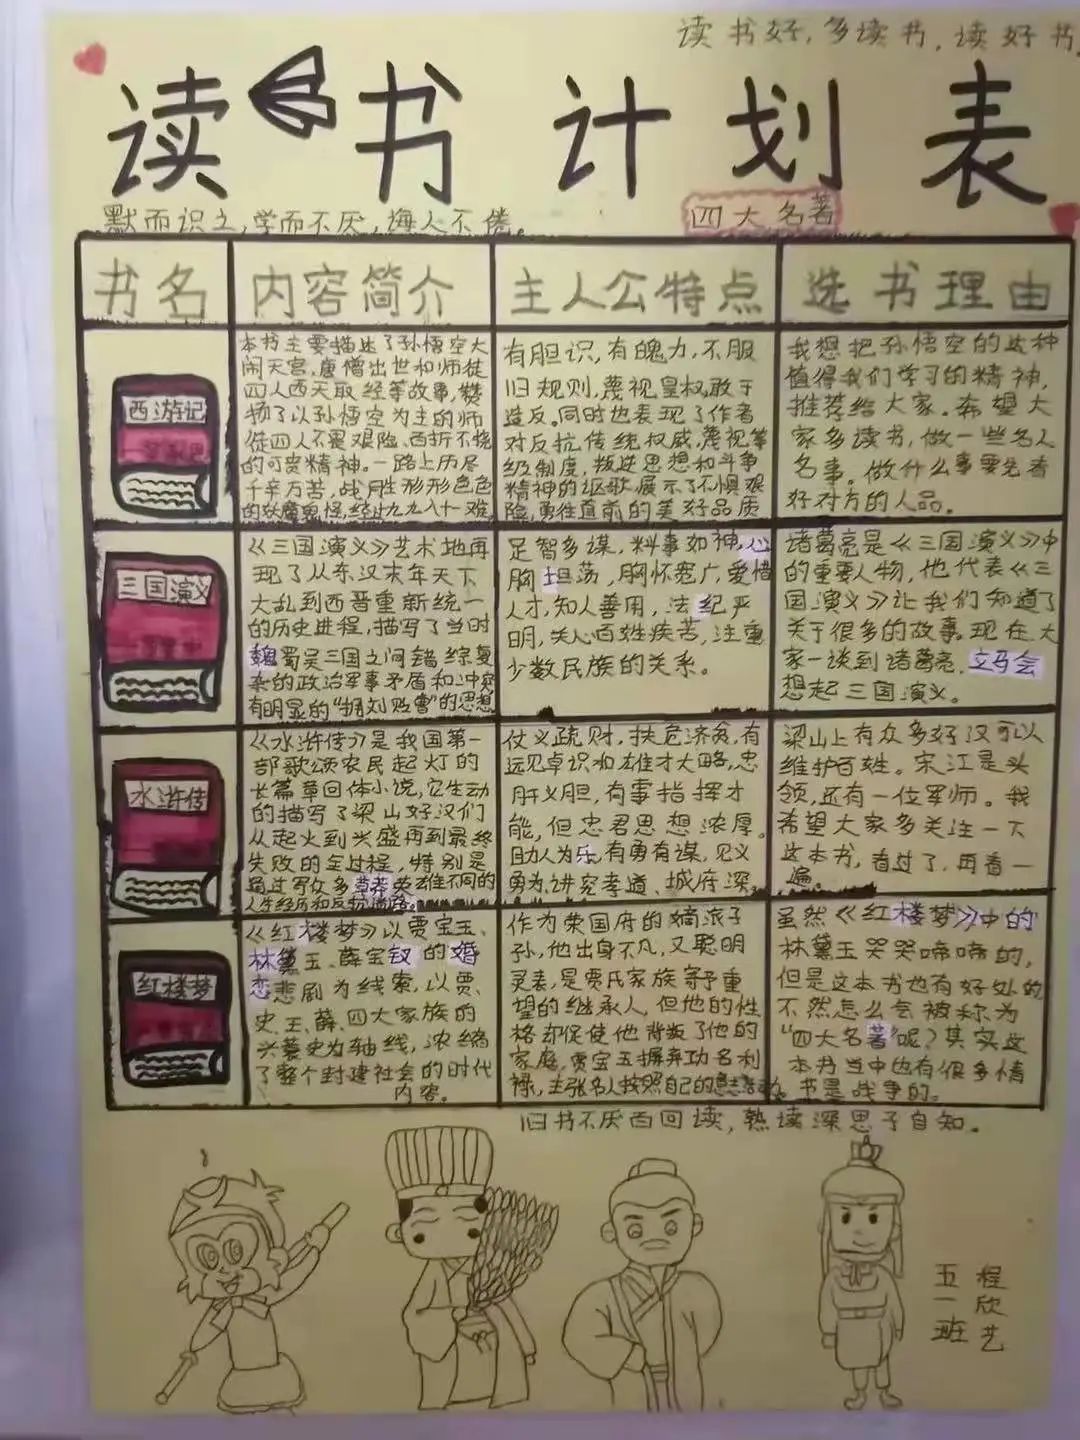 读书好,多读书,读好书,
读书计划表
默而识之,学而不厌,诲人不倦。
四大名著
书名
内容简介
主人公特点
选书理由
西游记
本书主要描述了孙悟空大
闹天宫,唐僧出世和师徒
四人西天取经等故事,赞
扬了以孙悟空为主的师
徒四人不畏艰险、百折不挠
的可贵精神。一路上历尽
千辛万苦,战胜形形色色
的妖魔鬼怪,经过九九八十一难,
有胆识,有魄力,不服
旧规则,蔑视皇权,敢于
造反。同时也表现了作者
对反抗传统权威,蔑视等
级制度,叛逆思想和斗争
精神的讴歌,展示了不惧艰
险,勇往直前的美好品质
我想把孙悟空的这种
值得我们学习的精神,
推荐给大家。希望大
家多读书,做一些名人
名事。做什么事要先看
好对方的人品。
三国演义
《三国演义》艺术地再
现了从东汉末年天下
大乱到西晋重新统一
的历史进程,描写了当时
魏蜀吴三国之间错综复
杂的政治军事矛盾和冲突
有明显的“拥刘贬曹”的思想
足智多谋,料事如神,心
胸坦荡,胸怀宽广,爱惜
人才,知人善用,法纪严
明,关心百姓疾苦,注重
少数民族的关系。
诸葛亮是《三国演义》中
的重要人物,他代表《三
国演义》让我们知道了
关于很多的故事。现在大
家一谈到诸葛亮,立马会
想起三国演义。
水浒传
《水浒传》是我国第一
部歌颂农民起灯的
长篇章回体小说,它生动
的描写了梁山好汉们
从起火到兴盛再到最终
失败的全过程,特别是
通过写众多草莽英雄不同的
人生经历和反抗道路。
仗义疏财,扶危济贫,有
远见卓识和雄才大略,忠
肝义胆,有事指挥才
能,但忠君思想浓厚。
助人为乐,有勇有谋,见义
勇为,讲究孝道、城府深
梁山上有众多好汉可以
维护百姓。宋江是头
领,还有一位军师。我
希望大家多关注一下
这本书,看过了,再看一
遍。
红楼梦
《红楼梦》以贾宝玉、
林黛玉、薛宝钗的婚
恋悲剧为线索,以贾、
史、王、薛、四大家族的
兴衰史为轴线,浓缩
了整个封建社会的时代
内容。
作为荣国府的嫡派子
孙,他出身不凡,又聪明
灵表,是贾氏家族寄予重
望的继承人,但他的性
格却促使他背叛了他的
家庭,贾宝玉摒弃功名利
禄,主张名人按照自己的意志活动。
虽然《红楼梦》中的
林黛玉哭哭啼啼的,
但是这本书也有好处的
不然怎么会被称为
“四大名著”呢?其实这
本书当中也有很多情
书是战争的。
旧书不厌百回读,熟读深思子自知。
五一班
程欣艺